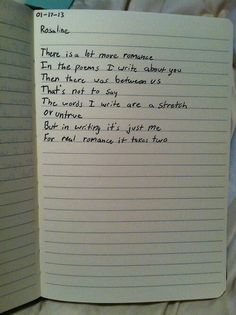 01-17-13
Rosaline
There is a lot more romance
In the poems I write about you
Then there was between us
That's not to say
The words I write are a stretch
or untrue
But in writing it's just me
For real romance it takes two